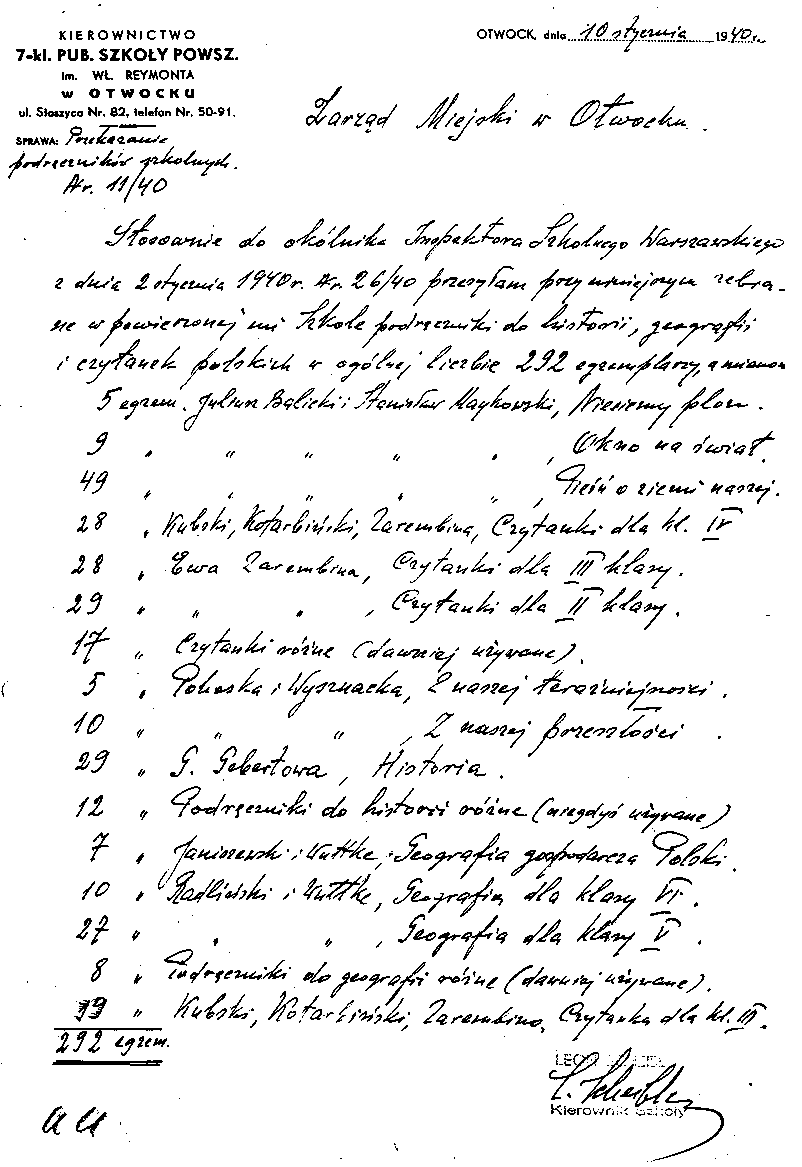 KIEROWNICTWO
7-kl. PUB. SZKOŁY POWSZ.
im. WŁ. REYMONTA
w OTWOCKU
ul. Staszyca Nr. 82, telefon Nr. 50-91.
SPRAWA: Przekazanie
podręczników szkolnych.
Nr. 11/40
OTWOCK, dnia 10 stycznia 1940 r.
Zarząd Miejski w Otwocku.
Stosownie do okólnika Inspektora Szkolnego Warszawskiego
z dnia 2 stycznia 1940 r. Nr. 26/40 przesyłam przy niniejszym zebra-
ne w powierzonej mi Szkole podręczniki do historii, geografii
i czytanek polskich w ogólnej liczbie 292 egzemplarzy, a mianow
5 egzem. Juliusz Balicki i Stanisław Maykowski, Niesiemy plon.
9 " " " " " , Okno na świat.
49 " " " " " , Pieśń o ziemi naszej.
28 " Kubski, Kotarbiński, Zarembina, Czytanki dla kl. IV
28 " Ewa Zarembina, Czytanki dla III klasy.
29 " " " , Czytanki dla II klasy.
17 " Czytanki różne (dawniej używane).
5 " Pohoska i Wysznacka, Z naszej teraźniejności.
10 " " " , Z naszej przeszłości.
29 " G. Gebertowa, Historia.
12 " Podręczniki do historii różne (niegdyś używane)
7 " Janiszewski i Wuttke, Geografia gospodarcza Polski.
10 " Radliński i Wuttke, Geografia dla klasy VI.
27 " " " , Geografia dla klasy V.
8 " Podręczniki do geografii różne (dawniej używane).
19 " Kubski, Kotarbiński, Zarembina, Czytanka dla kl. III.
292 egzem.
LEON
Kierownik Szkoły